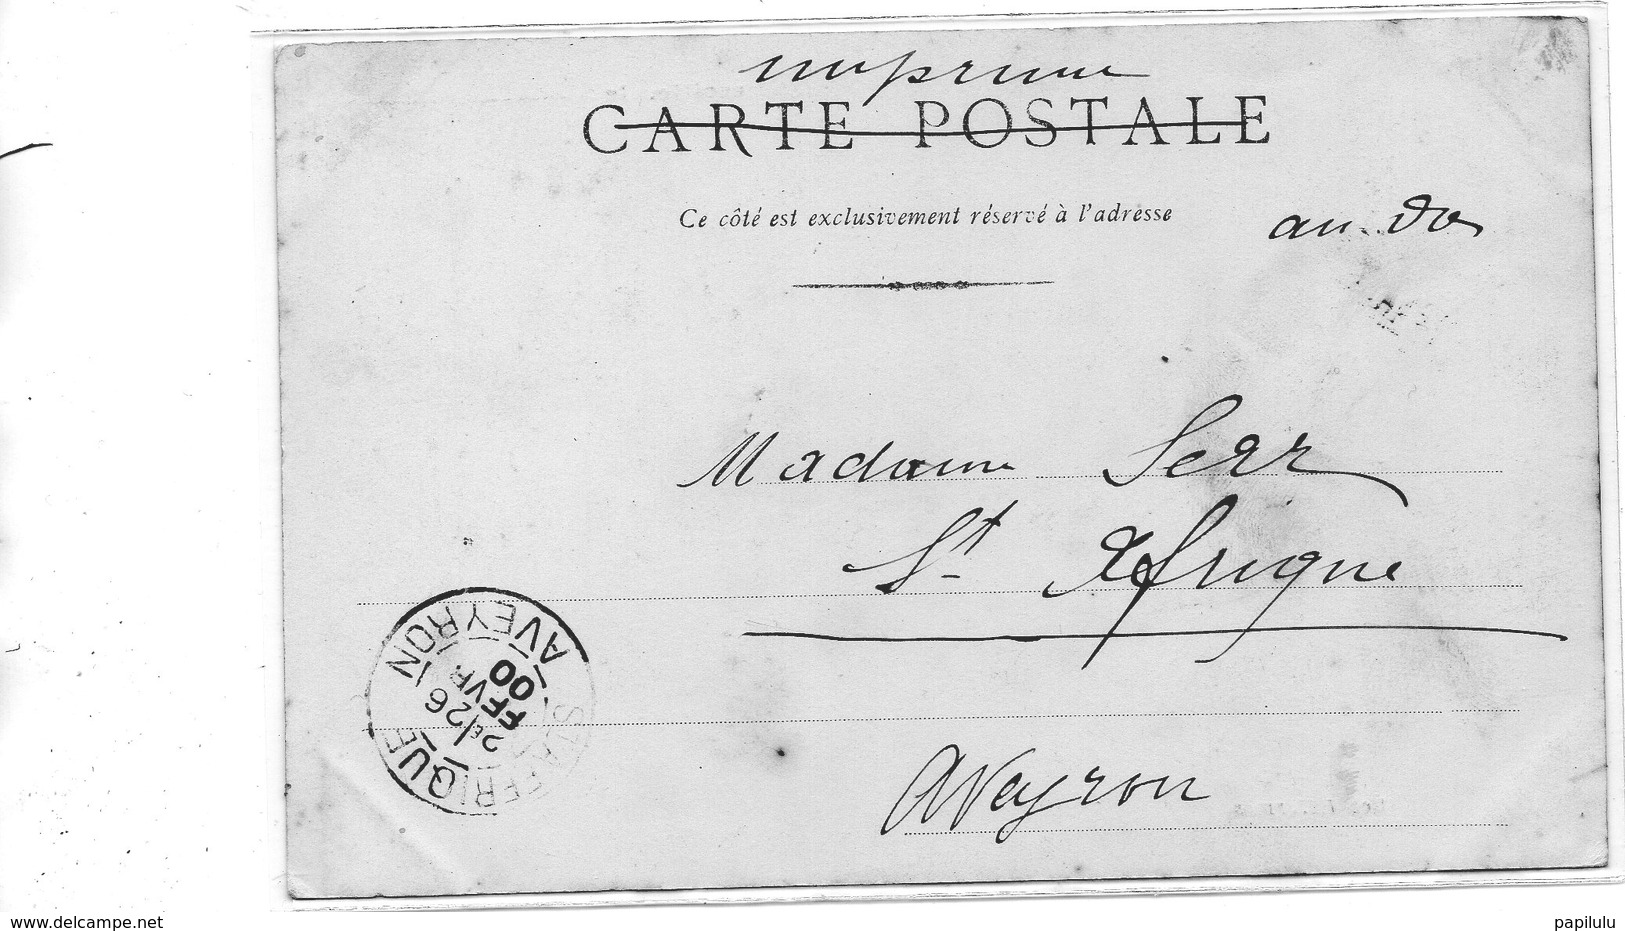 imprime
CARTE POSTALE
Ce côté est exclusivement réservé à l'adresse
au dos
Madame Serr
St Afrique
Aveyron
ST AFFRIQUE AVEYRON
2E/26
FEVR
00
www.delcampe.net
papilulu